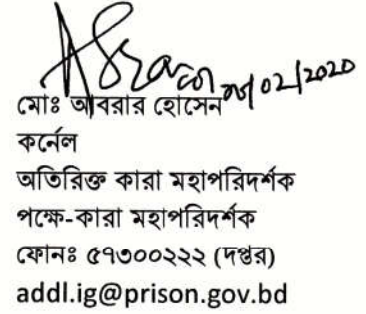 মোঃ আবরার হোসেন
কর্নেল
অতিরিক্ত কারা মহাপরিদর্শক
পক্ষে-কারা মহাপরিদর্শক
ফোনঃ ৫৭৩০০২২২ (দপ্তর)
addl.ig@prison.gov.bd